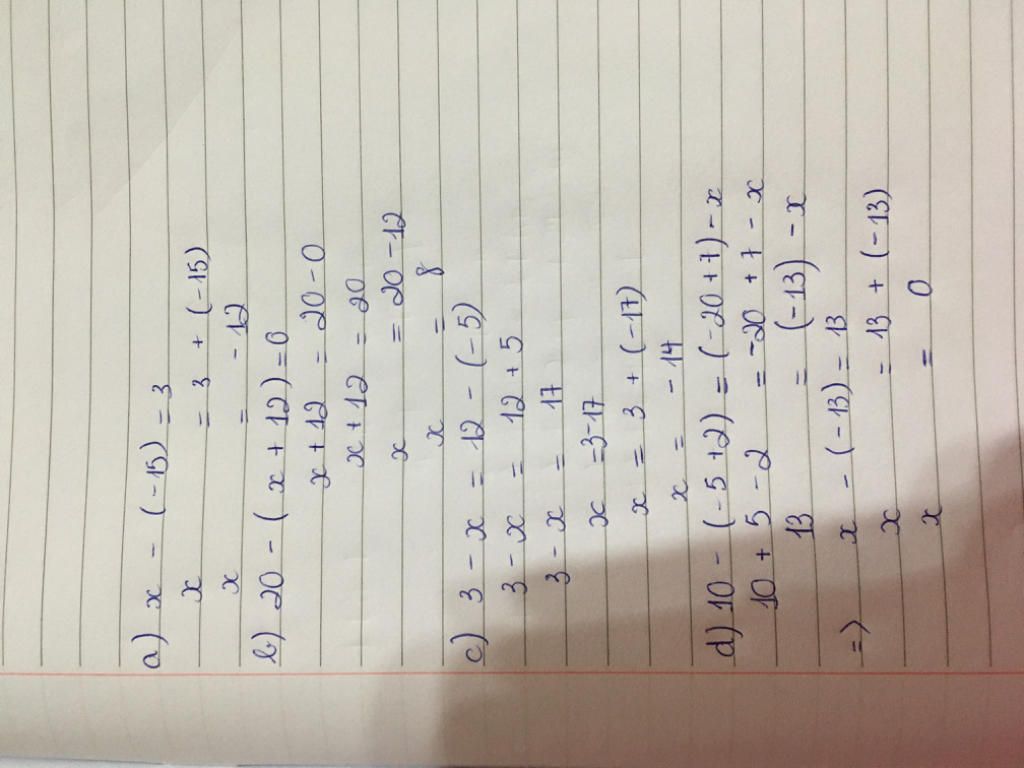 a) x - (-15) = 3
x = 3 + (-15)
x = -12
b) 20 - ( x + 12) = 0
x + 12 = 20 - 0
x + 12 = 20
x = 20 - 12
x = 8
c) 3 - x = 12 - (-5)
3 - x = 12 + 5
3 - x = 17
x = 3-17
x = 3 + (-17)
x = -14
d) 10 - (-5 +2) = (-20 +7) - x
10 + 5 - 2 = -20 + 7 - x
13 = (-13) - x
=> x - (-13) = 13
x = 13 + (-13)
x = 0